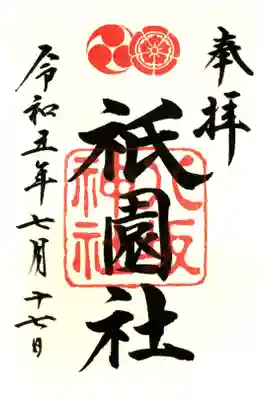 奉拝
祇園社
八坂神社
令和五年七月十七日